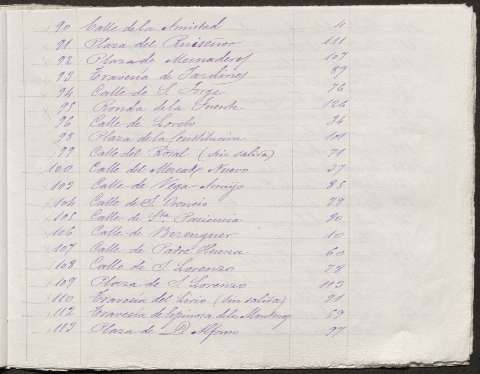 90 Calle de la Amistad 4
91 Plaza del Ruiseñor 111
92 Plaza de 107
93 Travesía de Jardines 89
94 Calle de S. Jorge 76
95 Ronda de la Fuente 126
96 Calle de Loreto 36
98 Plaza de la Constitución 104
99 Calle del Rosal (sin salida) 71
100 Calle del Mercado Nuevo 37
103 Calle de Vega Armijo 85
104 Calle de S. Orencio 78
105 Calle de Sta. Paciencia 80
106 Calle de Berenguer 10
107 Calle de Padre Huesca 60
108 Calle de S. Lorenzo 78
109 Plaza de S. Lorenzo 113
110 Travesía del Lirio (sin salida) 91
112 Travesía de Espinosa de los Monteros 59
113 Plaza de D. Alfonso 97